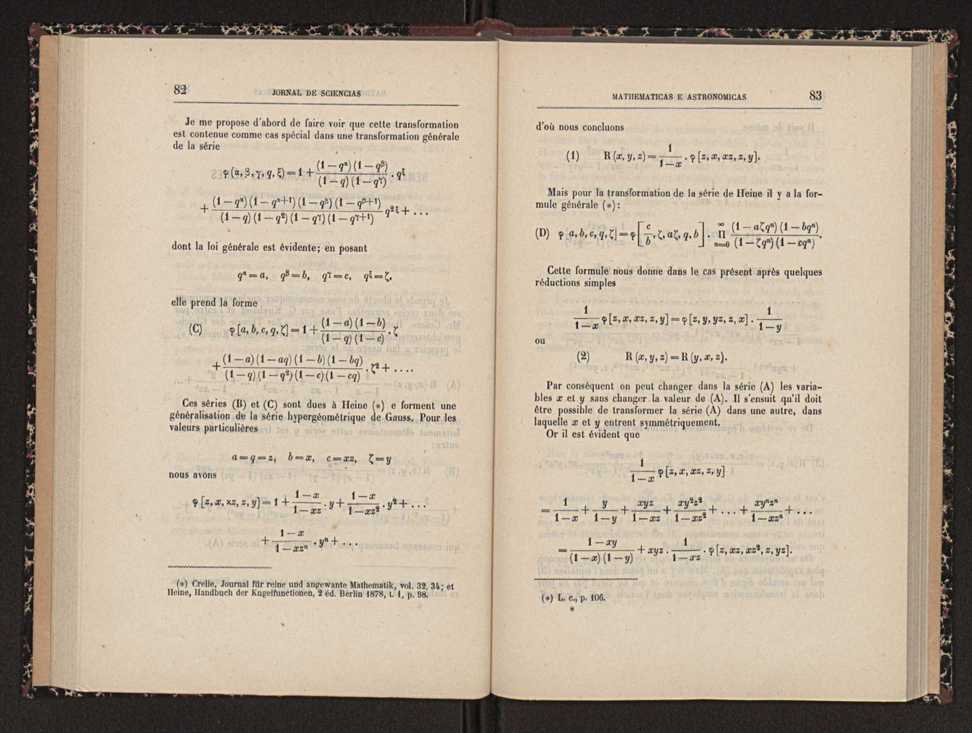 82 JORNAL DE SCIENCIAS
Je me propose d'abord de faire voir que cette transformation
est contenue comme cas spécial dans une transformation générale
de la série
φ(α, β, γ, q, ξ) = 1 + (1 − q^α)(1 − q^β) / (1 − q)(1 − q^γ) . q^ξ
+ (1 − q^α)(1 − q^{α+1})(1 − q^β)(1 − q^{β+1}) / (1 − q)(1 − q²)(1 − q^γ)(1 − q^{γ+1}) q^{2ξ} + ...
dont la loi générale est évidente; en posant
q^α = a, q^β = b, q^γ = c, q^ξ = ζ,
elle prend la forme
(C) φ[a, b, c, q, ζ] = 1 + (1 − a)(1 − b) / (1 − q)(1 − c) . ζ
+ (1 − a)(1 − aq)(1 − b)(1 − bq) / (1 − q)(1 − q²)(1 − c)(1 − cq) . ζ² + ....
Ces séries (B) et (C) sont dues à Heine (*) e forment une
généralisation de la série hypergéométrique de Gauss. Pour les
valeurs particulières
a = q = z, b = x, c = xz, ζ = y
nous avons
φ[z, x, xz, z, y] = 1 + 1 − x / 1 − xz . y + 1 − x / 1 − xz² . y² + ...
+ 1 − x / 1 − xzⁿ . yⁿ + ...
(*) Crelle, Journal für reine und angewante Mathematik, vol. 32, 34; et
Heine, Handbuch der Kugelfunctionen, 2 éd. Berlin 1878, t. 1, p. 98.
MATHEMATICAS E ASTRONOMICAS 83
d'où nous concluons
(1) R(x, y, z) = 1 / 1 − x . φ[z, x, xz, z, y].
Mais pour la transformation de la série de Heine il y a la for-
mule générale (*):
(D) φ[a, b, c, q, ζ] = φ[c / b, ζ, aζ, q, b] . ∞ Π n=0 (1 − aζqⁿ)(1 − bqⁿ) / (1 − ζqⁿ)(1 − cqⁿ).
Cette formule nous donne dans le cas présent après quelques
réductions simples
1 / 1 − x φ[z, x, xz, z, y] = φ[z, y, yz, z, x] . 1 / 1 − y
ou
(2) R(x, y, z) = R(y, x, z).
Par conséquent on peut changer dans la série (A) les varia-
bles x et y sans changer la valeur de (A). Il s'ensuit qu'il doit
être possible de transformer la série (A) dans une autre, dans
laquelle x et y entrent symmétriquement.
Or il est évident que
1 / 1 − x φ[z, x, xz, z, y]
= 1 / 1 − x + y / 1 − y + xyz / 1 − xz + xy²z² / 1 − xz² + ... + xyⁿzⁿ / 1 − xzⁿ + ...
= 1 − xy / (1 − x)(1 − y) + xyz . 1 / 1 − xz . φ[z, xz, xz², z, yz].
(*) L. c., p. 106.
*